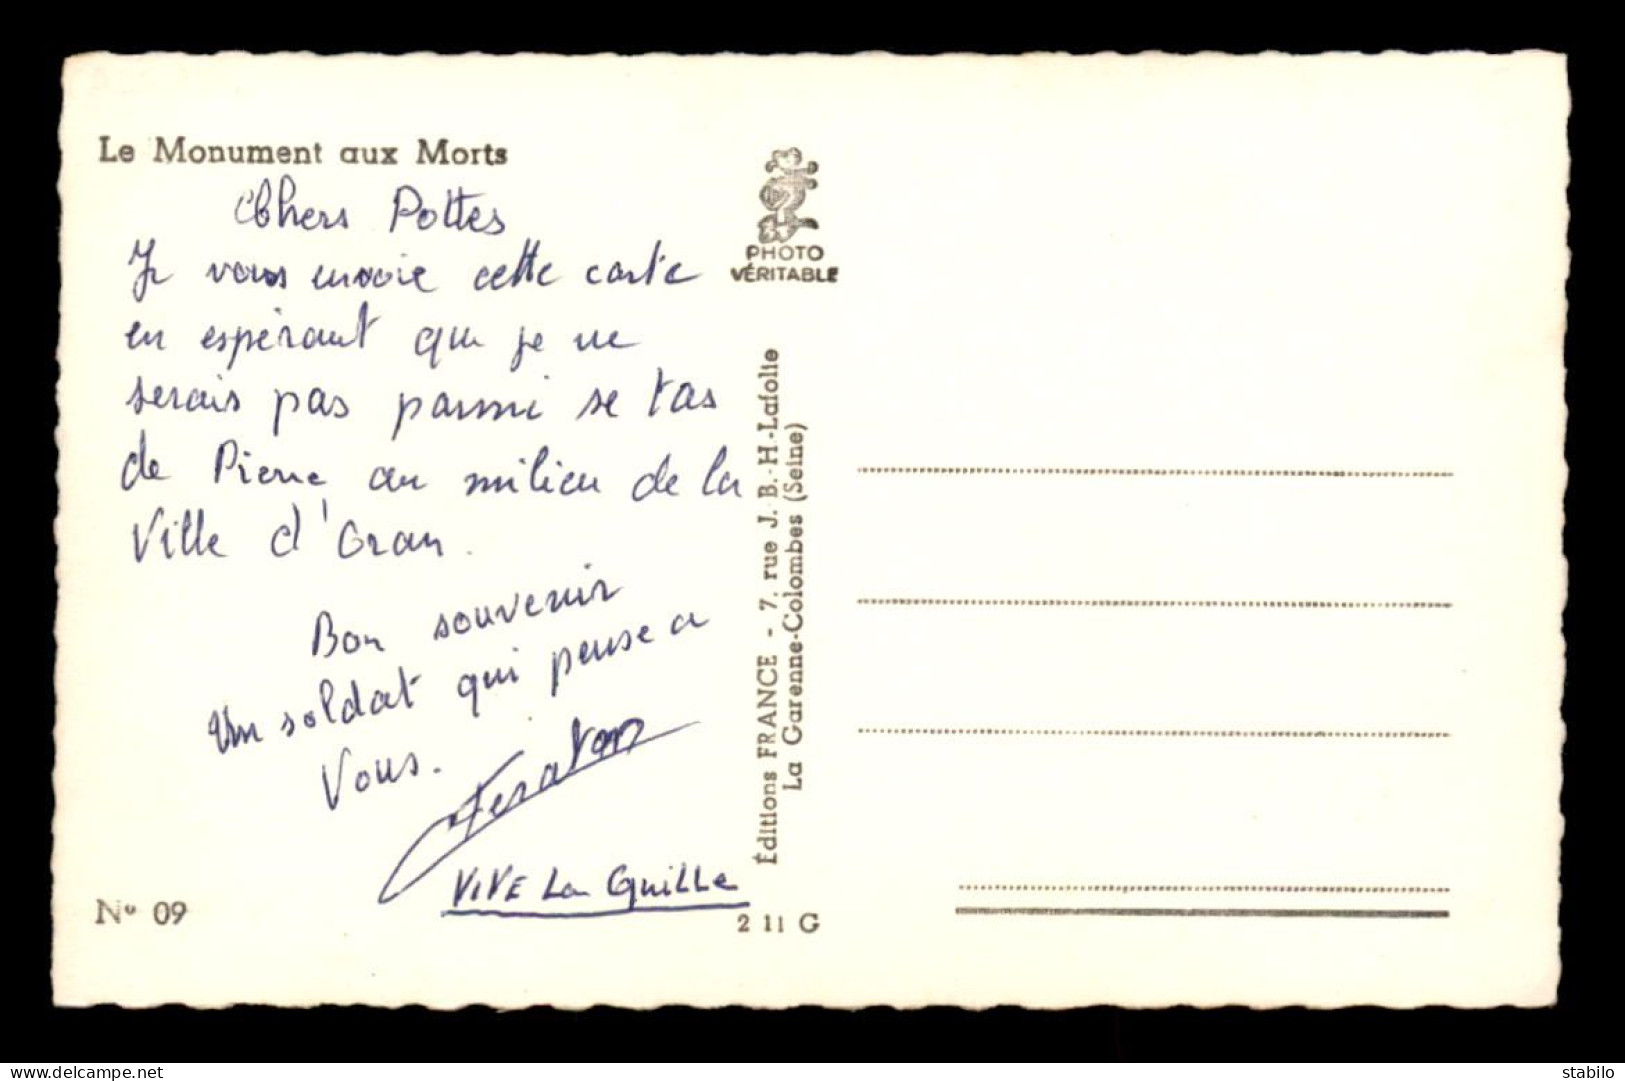 Le Monument aux Morts
Chers Pottes
Je vous envoie cette carte
en espérant que je ne
serais pas parmi se tas
de Pierre au milieu de la
Ville d'Oran.
Bon souvenir
Un soldat qui pense a
Vous.
VIVE La Quille
N° 09
PHOTO
VÉRITABLE
Éditions FRANCE - 7, rue J.-B.-H.-Lafolie
La Garenne-Colombes (Seine)
2 11 G
delcampe.net
stabilo